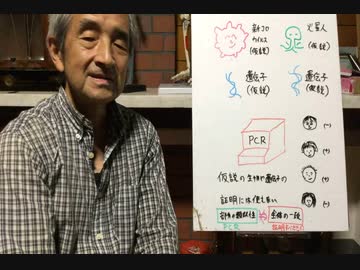 新コロ 火星人
ウイルス (仮説)
(仮説)
遺伝子 遺伝子
(仮説) (仮説)
PCR
(-)
(+)
(+)
(-)
仮説の生物や遺伝子の
証明には使えない
部分の類似性 全体の一致
PCR